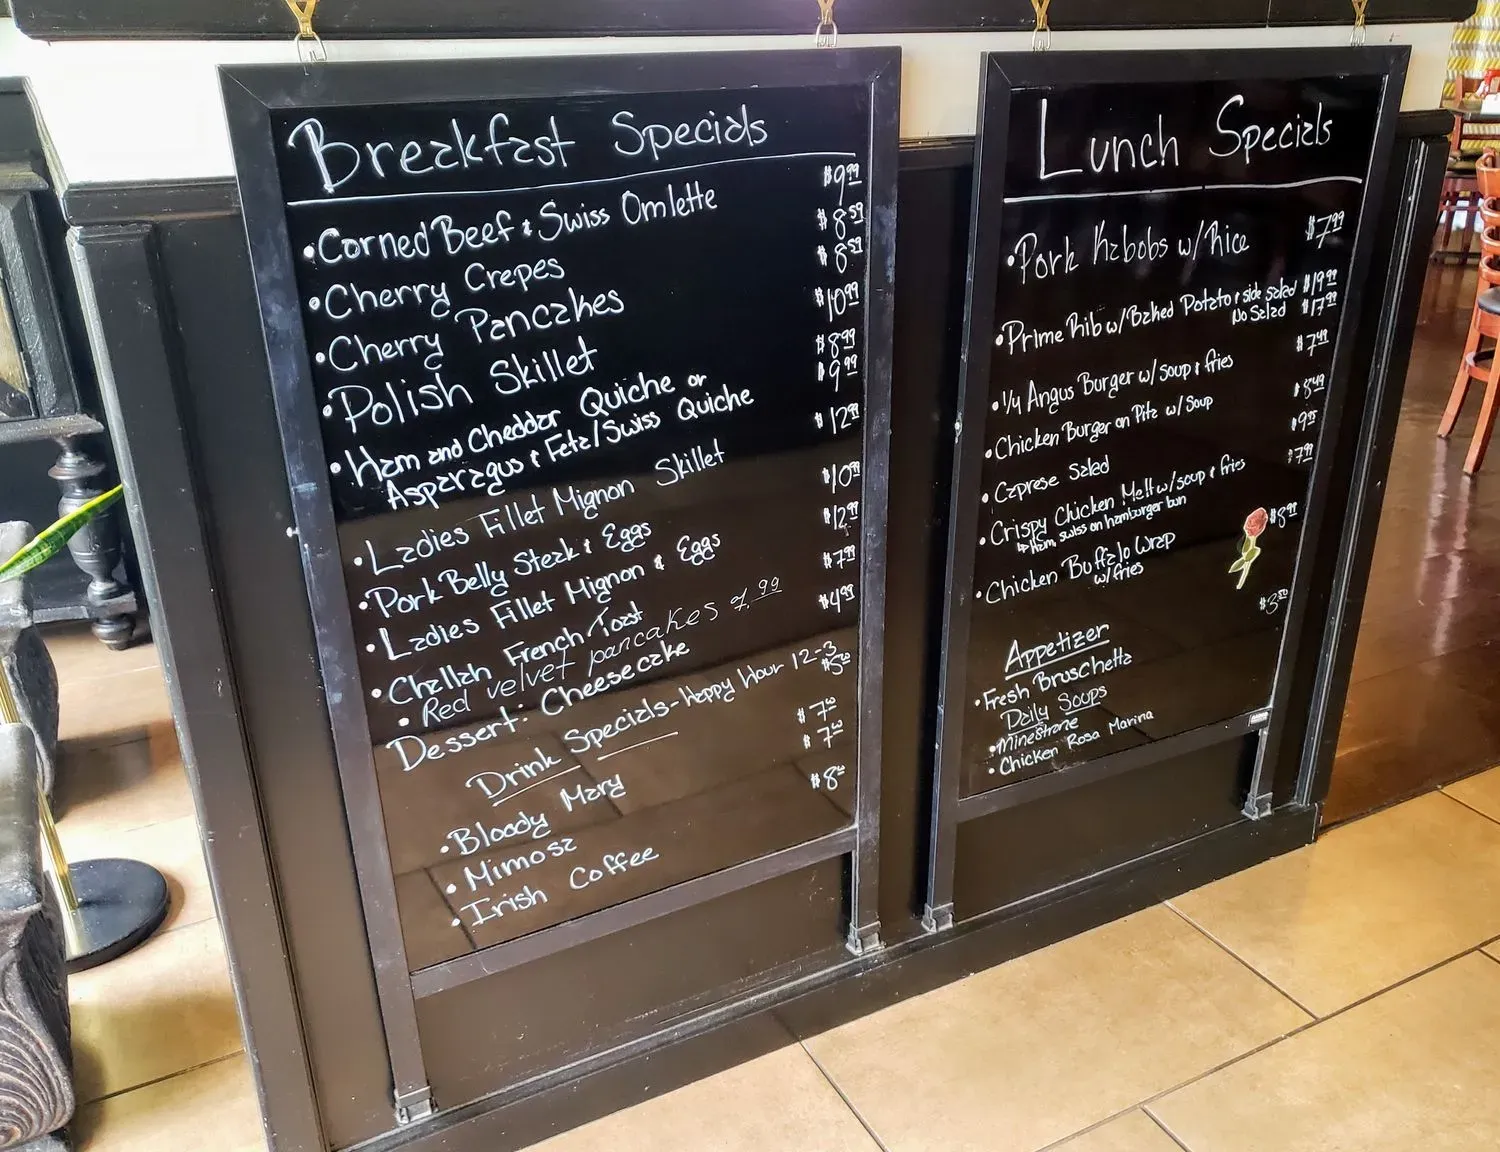 Breakfast Specials
• Corned Beef & Swiss Omlette $9.99
• Cherry Crepes $8.59
• Cherry Pancakes $8.59
• Polish Skillet $10.99
• Ham and Cheddar Quiche or $8.99
Asparagus & Feta/Swiss Quiche $9.99
• Ladies Fillet Mignon Skillet $12.99
• Pork Belly Steak & Eggs $10.99
• Ladies Fillet Mignon & Eggs $12.99
• Challah French Toast $7.99
• Red velvet pancakes 9.99
Dessert: Cheesecake $4.99
Drink Specials-Happy Hour 12-3
$5.00
• Bloody Mary $7.00
• Mimosa $7.00
• Irish Coffee $8.00
Lunch Specials
• Pork Kabobs w/Rice $7.99
• Prime Rib w/Baked Potato & side salad $19.99
No Salad $17.99
• 1/4 Angus Burger w/ soup & fries $7.49
• Chicken Burger on Pita w/ Soup $8.49
• Caprese Salad $9.95
• Crispy Chicken Melt w/soup & fries $7.99
Ham, swiss on hamburger bun
• Chicken Buffalo Wrap $8.99
w/fries
Appetizer
• Fresh Bruschetta $3.50
Daily Soups
• Minestrone
• Chicken Rosa Marina